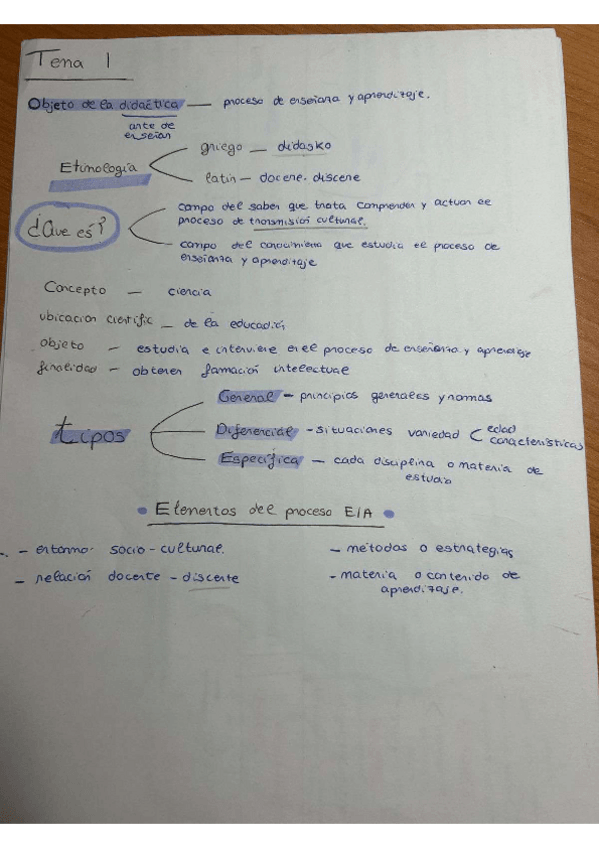 Tema 1
Objeto de la didactica — proceso de enseñana y aprenditaje.
arte de
enseñan
Etimología
griego — didasko
latin - docene. discene
¿Que es?
campo del saber que trata comprender y actuar el
proceso de transmisión cultural.
campo del conocimiento que estudia el proceso de
enseñanza y aprenditaje
Concepto — ciencia
ubicación cientific — de la educación
objeto — estudia e interviene en el proceso de enseñanza y aprendizaje
finalidad — obtener formación intelectual
tipos
General - principios generales y normas
Diferencial - situaciones variedad < edad
características
Específica — cada disciplina o materia de
estudio
• Elementos del proceso E/A •
- entorno socio-cultural.
- métodos o estrategias
- relación docente - discente
- materia o contenido de
aprenditaje.